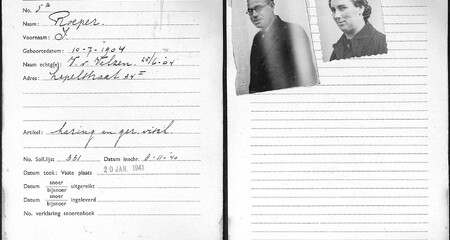 No. 5a
Naam: Roeper.
Voornaam: J.
Geboortedatum: 10-7-1904
Naam echtg(e): V. v. Velzen. 20/6-04
Adres: Lepelstraat 84 II
Artikel: haring en ger. visch.
No. Soll.lijst 331 Datum inschr. 8-11-40
Datum toek: Vaste plaats 20 JAN. 1941
Datum snoer bijsnoer uitgereikt
Datum snoer bijsnoer ingeleverd
No. verklaring snoerenboek